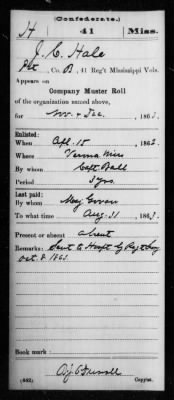 (Confederate.)
H 41 Miss.
J. C. Hale
Pvt, Co. B, 41 Reg't Mississippi Vols.
Appears on
Company Muster Roll
of the organization named above,
for Nov. & Dec., 1863.
Enlisted:
When Apl. 15, 1862.
Where Verona Miss
By whom Capt Ball
Period 3 yrs
Last paid:
By whom Maj Govan
To what time Aug 31, 1863.
Present or absent absent
Remarks: Sent to Hospt by Regt Surg
Oct. 8 1863.
Book mark:
(642) Copyist.